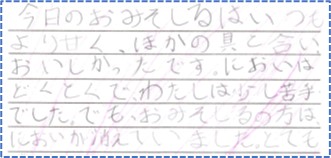 今日のおみそしるはいつも
よりせく、ほかの具と合い
おいしかったです。においは
どくとくで、わたしは少し苦手
でした。でも、おみそしるの方は、
においが消えていました。とても